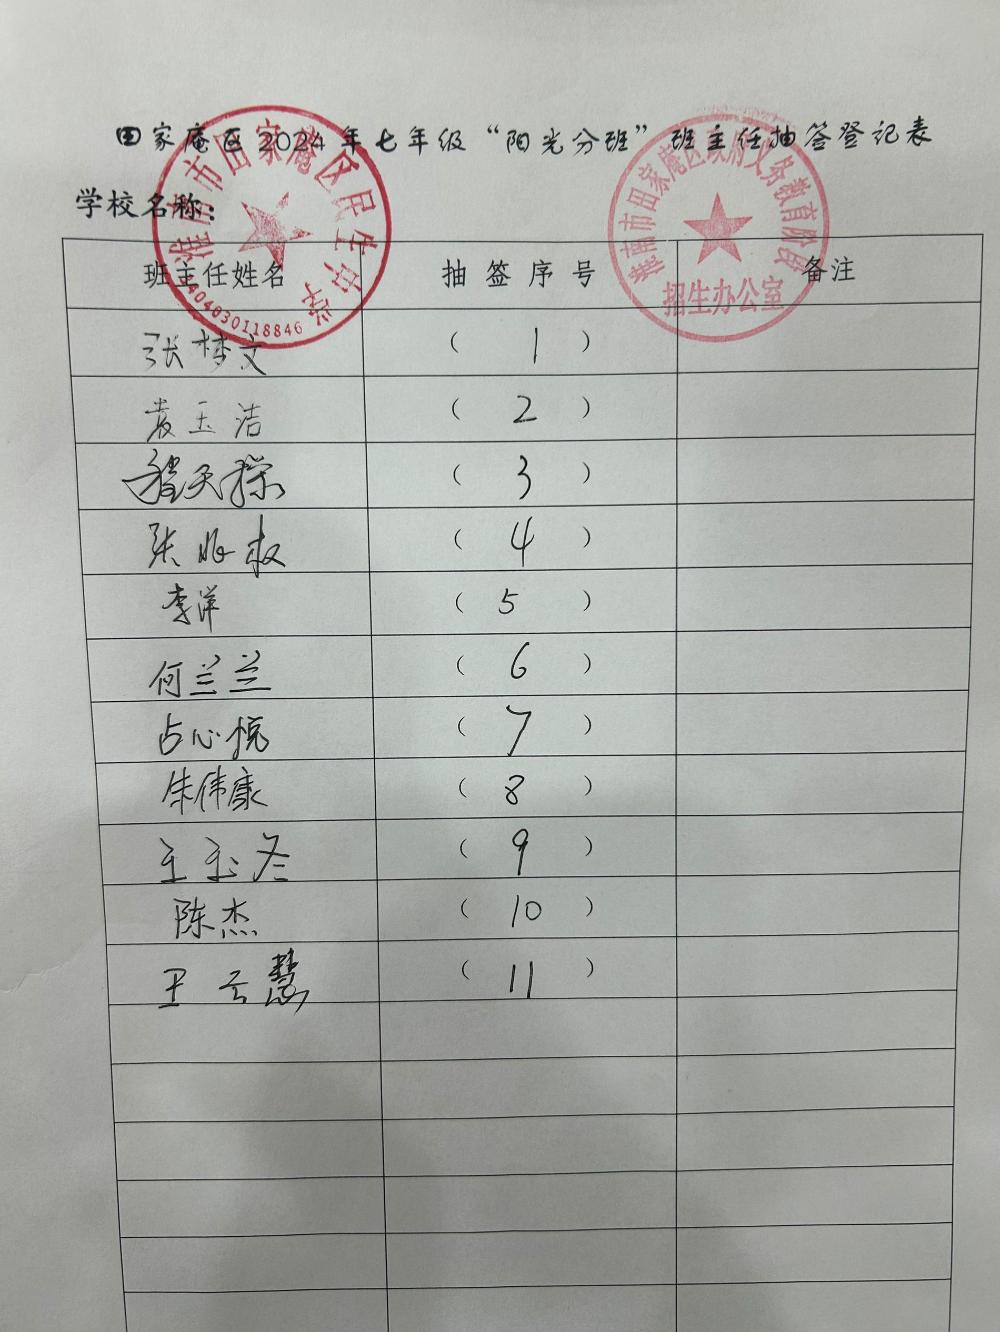 田家庵区2024年七年级“阳光分班”班主任抽签登记表
学校名称：
淮南市田家庵区民生中学
3404030118846
淮南市田家庵区政府义务教育阶段
招生办公室
班主任姓名 抽签序号 备注
张梦文 （ 1 ）
袁玉洁 （ 2 ）
程天 （ 3 ）
张 （ 4 ）
李洋 （ 5 ）
何兰兰 （ 6 ）
占心悦 （ 7 ）
朱伟康 （ 8 ）
王玉冬 （ 9 ）
陈杰 （ 10 ）
王云慧 （ 11 ）